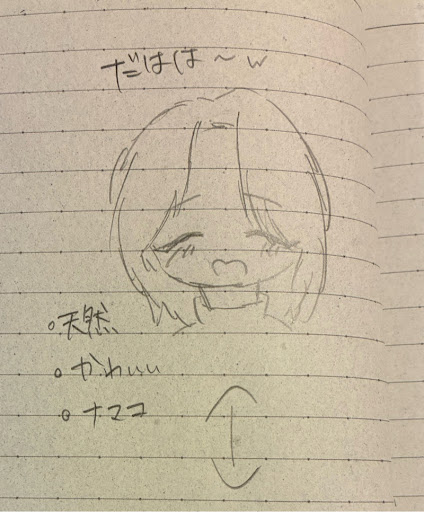 だはは〜w
。天然
。かわいい
。ナマコ